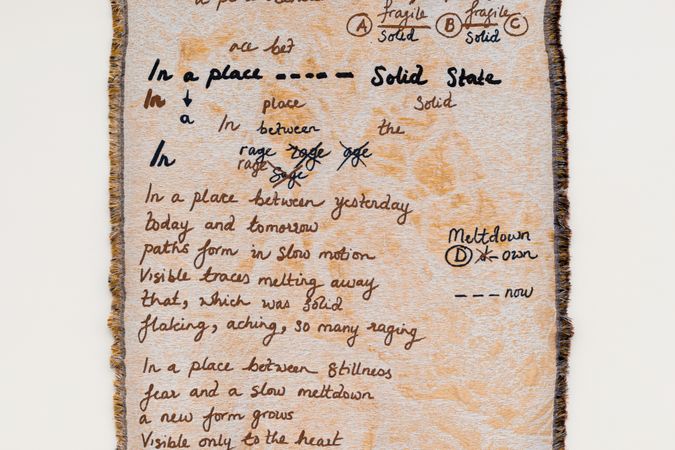 fragile fragile
A Solid B Solid C
ace bet
In a place ----- Solid State
In place Solid
a
In between the
In rage rage age
rage Sage
In a place between yesterday
today and tomorrow
paths form in slow motion
Meltdown
Visible traces melting away
D own
that, which was solid
--- now
flaking, aching, so many raging
In a place between stillness
fear and a slow meltdown
a new form grows
Visible only to the heart